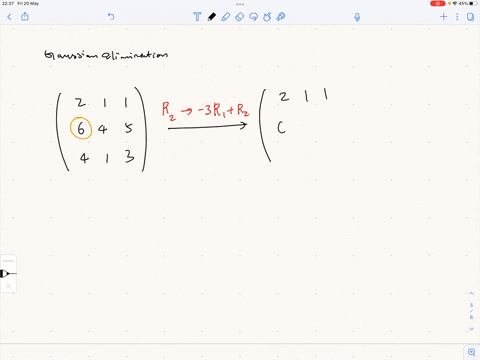 22:37 Fri 20 May
45%
Gaussian elimination
2 1 1
6 4 5
4 1 3
R2 → -3R1 + R2
2 1 1
5
/
6